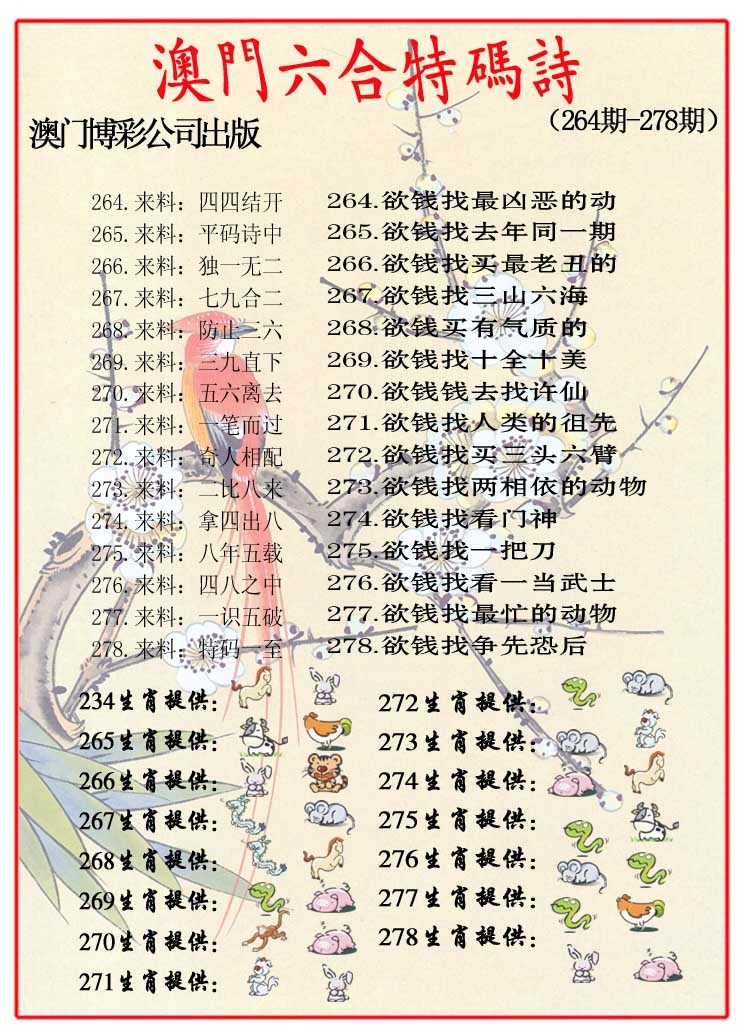 澳門六合特碼詩
澳门博彩公司出版
（264期-278期）
264.来料：四四结开
265.来料：平码诗中
266.来料：独一无二
267.来料：七九合二
268.来料：防止二六
269.来料：三九直下
270.来料：五六离去
271.来料：一笔而过
272.来料：奇人相配
273.来料：二比八来
274.来料：拿四出八
275.来料：八年五载
276.来料：四八之中
277.来料：一识五破
278.来料：特码一至
264.欲钱找最凶恶的动
265.欲钱找去年同一期
266.欲钱找买最老丑的
267.欲钱找三山六海
268.欲钱买有气质的
269.欲钱找十全十美
270.欲钱钱去找许仙
271.欲钱找人类的祖先
272.欲钱找买三头六臂
273.欲钱找两相依的动物
274.欲钱找看门神
275.欲钱找一把刀
276.欲钱找看一当武士
277.欲钱找最忙的动物
278.欲钱找争先恐后
234生肖提供：
265生肖提供：
266生肖提供：
267生肖提供：
268生肖提供：
269生肖提供：
270生肖提供：
271生肖提供：
272生肖提供：
273生肖提供：
274生肖提供：
275生肖提供：
276生肖提供：
277生肖提供：
278生肖提供：